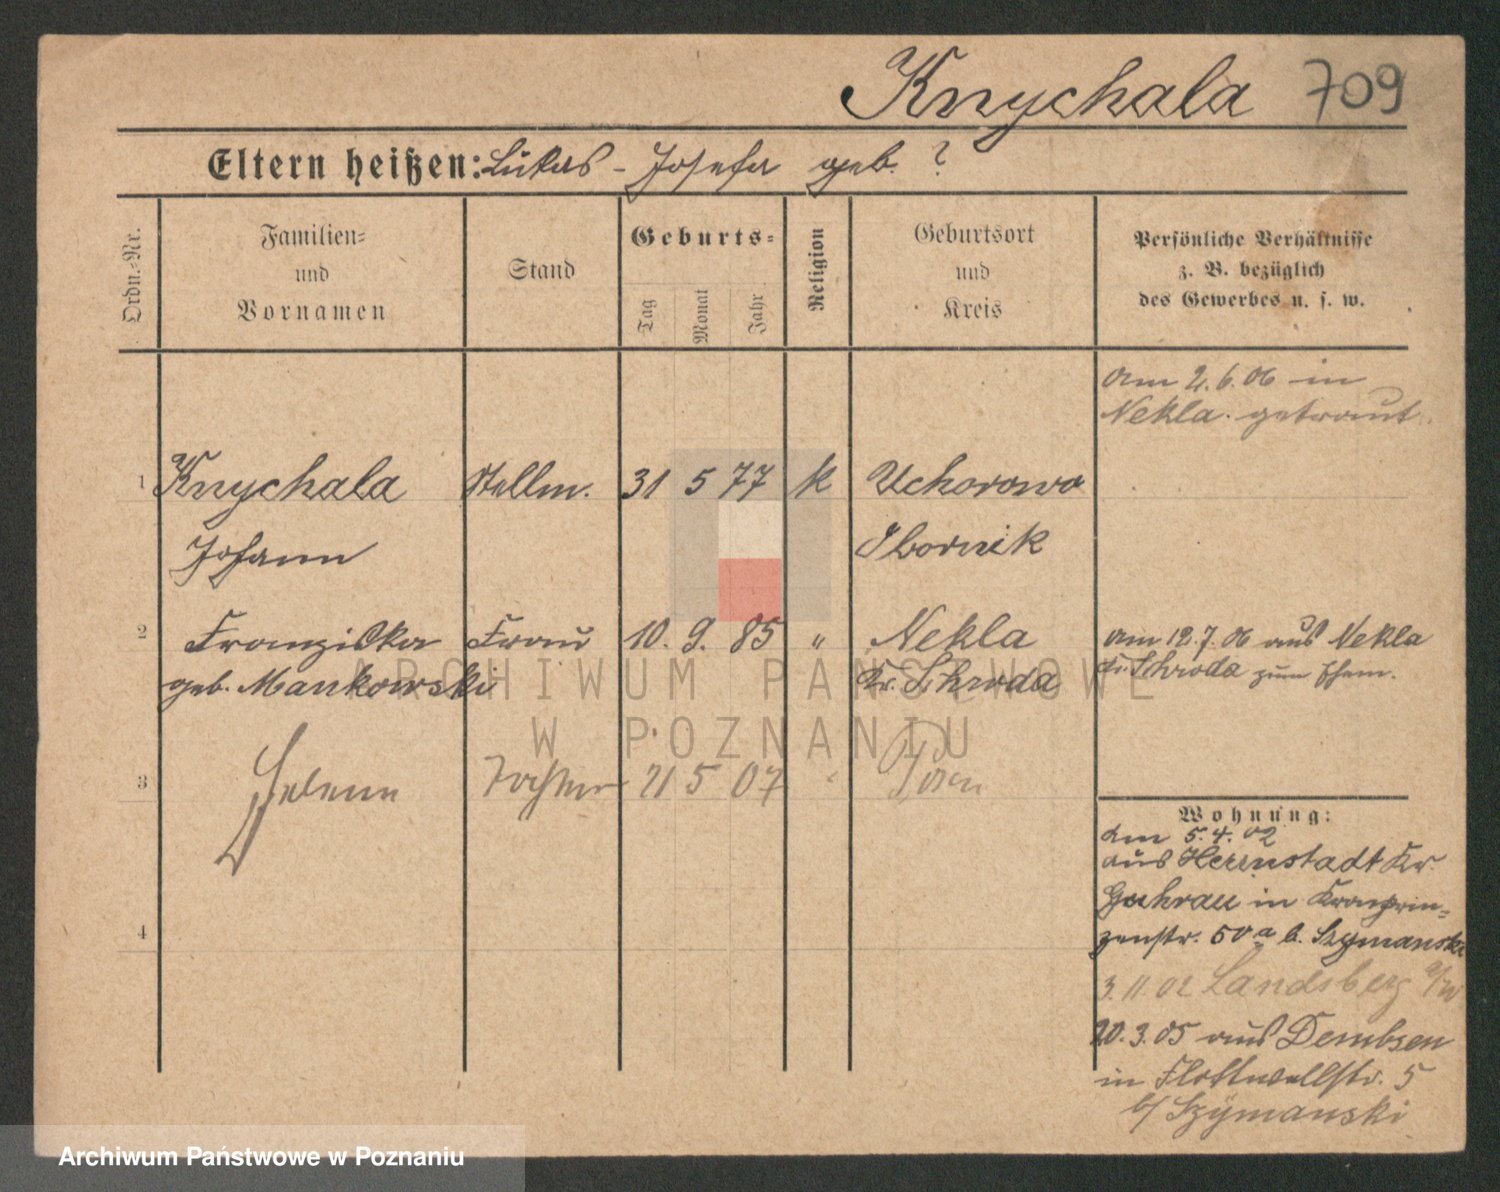 Knychala 709
Eltern heißen: Lukas - Josefa geb. ?
Ordn.-Nr.
Familien-
und
Vornamen
Stand
Geburts-
Tag
Monat
Jahr
Religion
Geburtsort
und
Kreis
Persönliche Verhältnisse
z. B. bezüglich
des Gewerbes u. s. w.
am 2.6.06 in
Nekla. getraut.
1 Knychala Stellm. 31 5 77 k Uchorowo
Johann Obornik
2 Franziska Frau 10. 9. 85 " Nekla am 12.7.06 aus Nekla
geb. Mankowski Kr. Schroda Kr. Schroda zum Ehem.
ARCHIWUM PAŃSTWOWE
W POZNANIU
3 Helene Tochter 21 5 07 " Posen
Wohnung:
am 5.4.02
aus Herrnstadt Kr.
Guhrau in Kronprin-
zenstr. 50a b. Szymanski
3.11.02 Landsberg a/W
20.3.05 aus Dembsen
in Flottwellstr. 5
b/ Szymanski
4
Archiwum Państwowe w Poznaniu